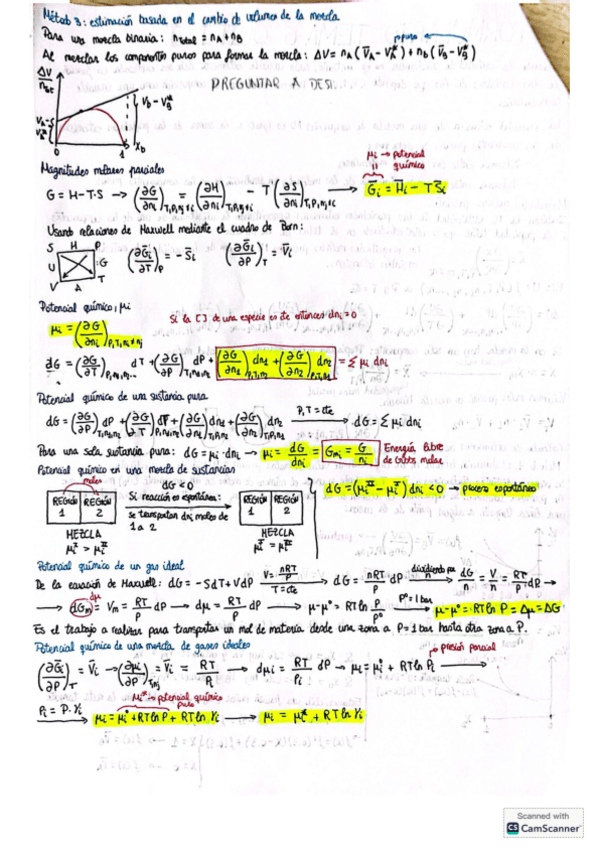 Método 3: estimación basada en el cambio de volumen de la mezcla
Para una mezcla binaria: n_total = n_A + n_B
puros
Al mezclar los componentes puros para formar la mezcla: ΔV = n_A (V̄_A − V_A*) + n_b (V̄_B − V_B*)
ΔV/n_tot
PREGUNTAR A DESI.
V_b − V_B*
V_A − V_A*
0 1 x_b
Magnitudes molares parciales
μi → potencial químico
G = H − T·S → (∂G/∂ni)_T,P,nj≠i = (∂H/∂ni)_T,P,nj≠i − T (∂S/∂ni)_T,P,nj≠i → Ḡi = H̄i − T S̄i
Usando relaciones de Maxwell mediante el cuadro de Born:
S H P
U G
V A T
(∂Ḡi/∂T)_P = − S̄i (∂Ḡi/∂P)_T = V̄i
Potencial químico, μi
Si la [ ] de una especie es cte entonces dni = 0
μi = (∂G/∂ni)_P,T,ni≠nj
dG = (∂G/∂T)_P,n1,n2... dT + (∂G/∂P)_T,n1,n2 dP + (∂G/∂n1)_P,T,n2 dn1 + (∂G/∂n2)_P,T,n1 dn2 = Σ μi dni
Potencial químico de una sustancia pura
dG = (∂G/∂P)_T,n1,n2 dP + (∂G/∂T)_P,n1,n2 dT + (∂G/∂n1)_T,P,n2 dn1 + (∂G/∂n2)_T,P,n1 dn2 P,T = cte → dG = Σ μi dni
Para una sola sustancia pura: dG = μi · dni → μi = dG/dni = Gmi = G/ni Energía libre de Gibbs molar
Potencial químico en una mezcla de sustancias
moles
REGIÓN 1 REGIÓN 2
MEZCLA
μi^I > μi^II
dG < 0
Si reacción es espontánea:
se transportan dni moles de 1 a 2
REGIÓN 1 REGIÓN 2
MEZCLA
μi^I = μi^II
dG = (μi^II − μi^I) dni < 0 → proceso espontáneo
Potencial químico de un gas ideal
De la ecuación de Maxwell: dG = −SdT + VdP V = nRT/P T = cte → dG = nRT/P dP dividiendo por n → dG/n = V/n = RT/P dP →
→ dGm = Vm = RT/P dP → dμ = RT/P dP → μ − μ° = RT ln P/P° P° = 1 bar → μ − μ° = RT ln P = Δμ = ΔG
dμ
Es el trabajo a realizar para transportar un mol de materia desde una zona a P = 1 bar hasta otra zona a P.
Potencial químico de una mezcla de gases ideales
presión parcial
(∂Ḡi/∂P)_T = V̄i → (∂μi/∂P)_T,nj = V̄i = RT/Pi → dμi = RT/Pi dP → μi = μi° + RT ln Pi →
μi* → potencial químico puro
Pi = P · Yi → μi = μi° + RT ln P + RT ln Yi → μi = μi* + RT ln Yi
Scanned with
CS CamScanner